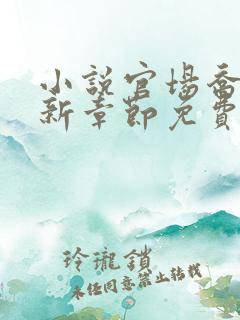 小説官場喬
新章節免費
玲瓏鎖
未经同意禁止转载